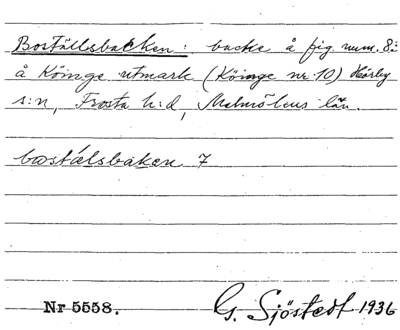 Boställsbacken: backe å fig num. 8:
å Köinge utmark (Köinge nr 10) Hörby
s:n, Frosta h:d, Malmöhus län.
bostälsbaken 7
Nr 5558. G. Sjöstedt 1936